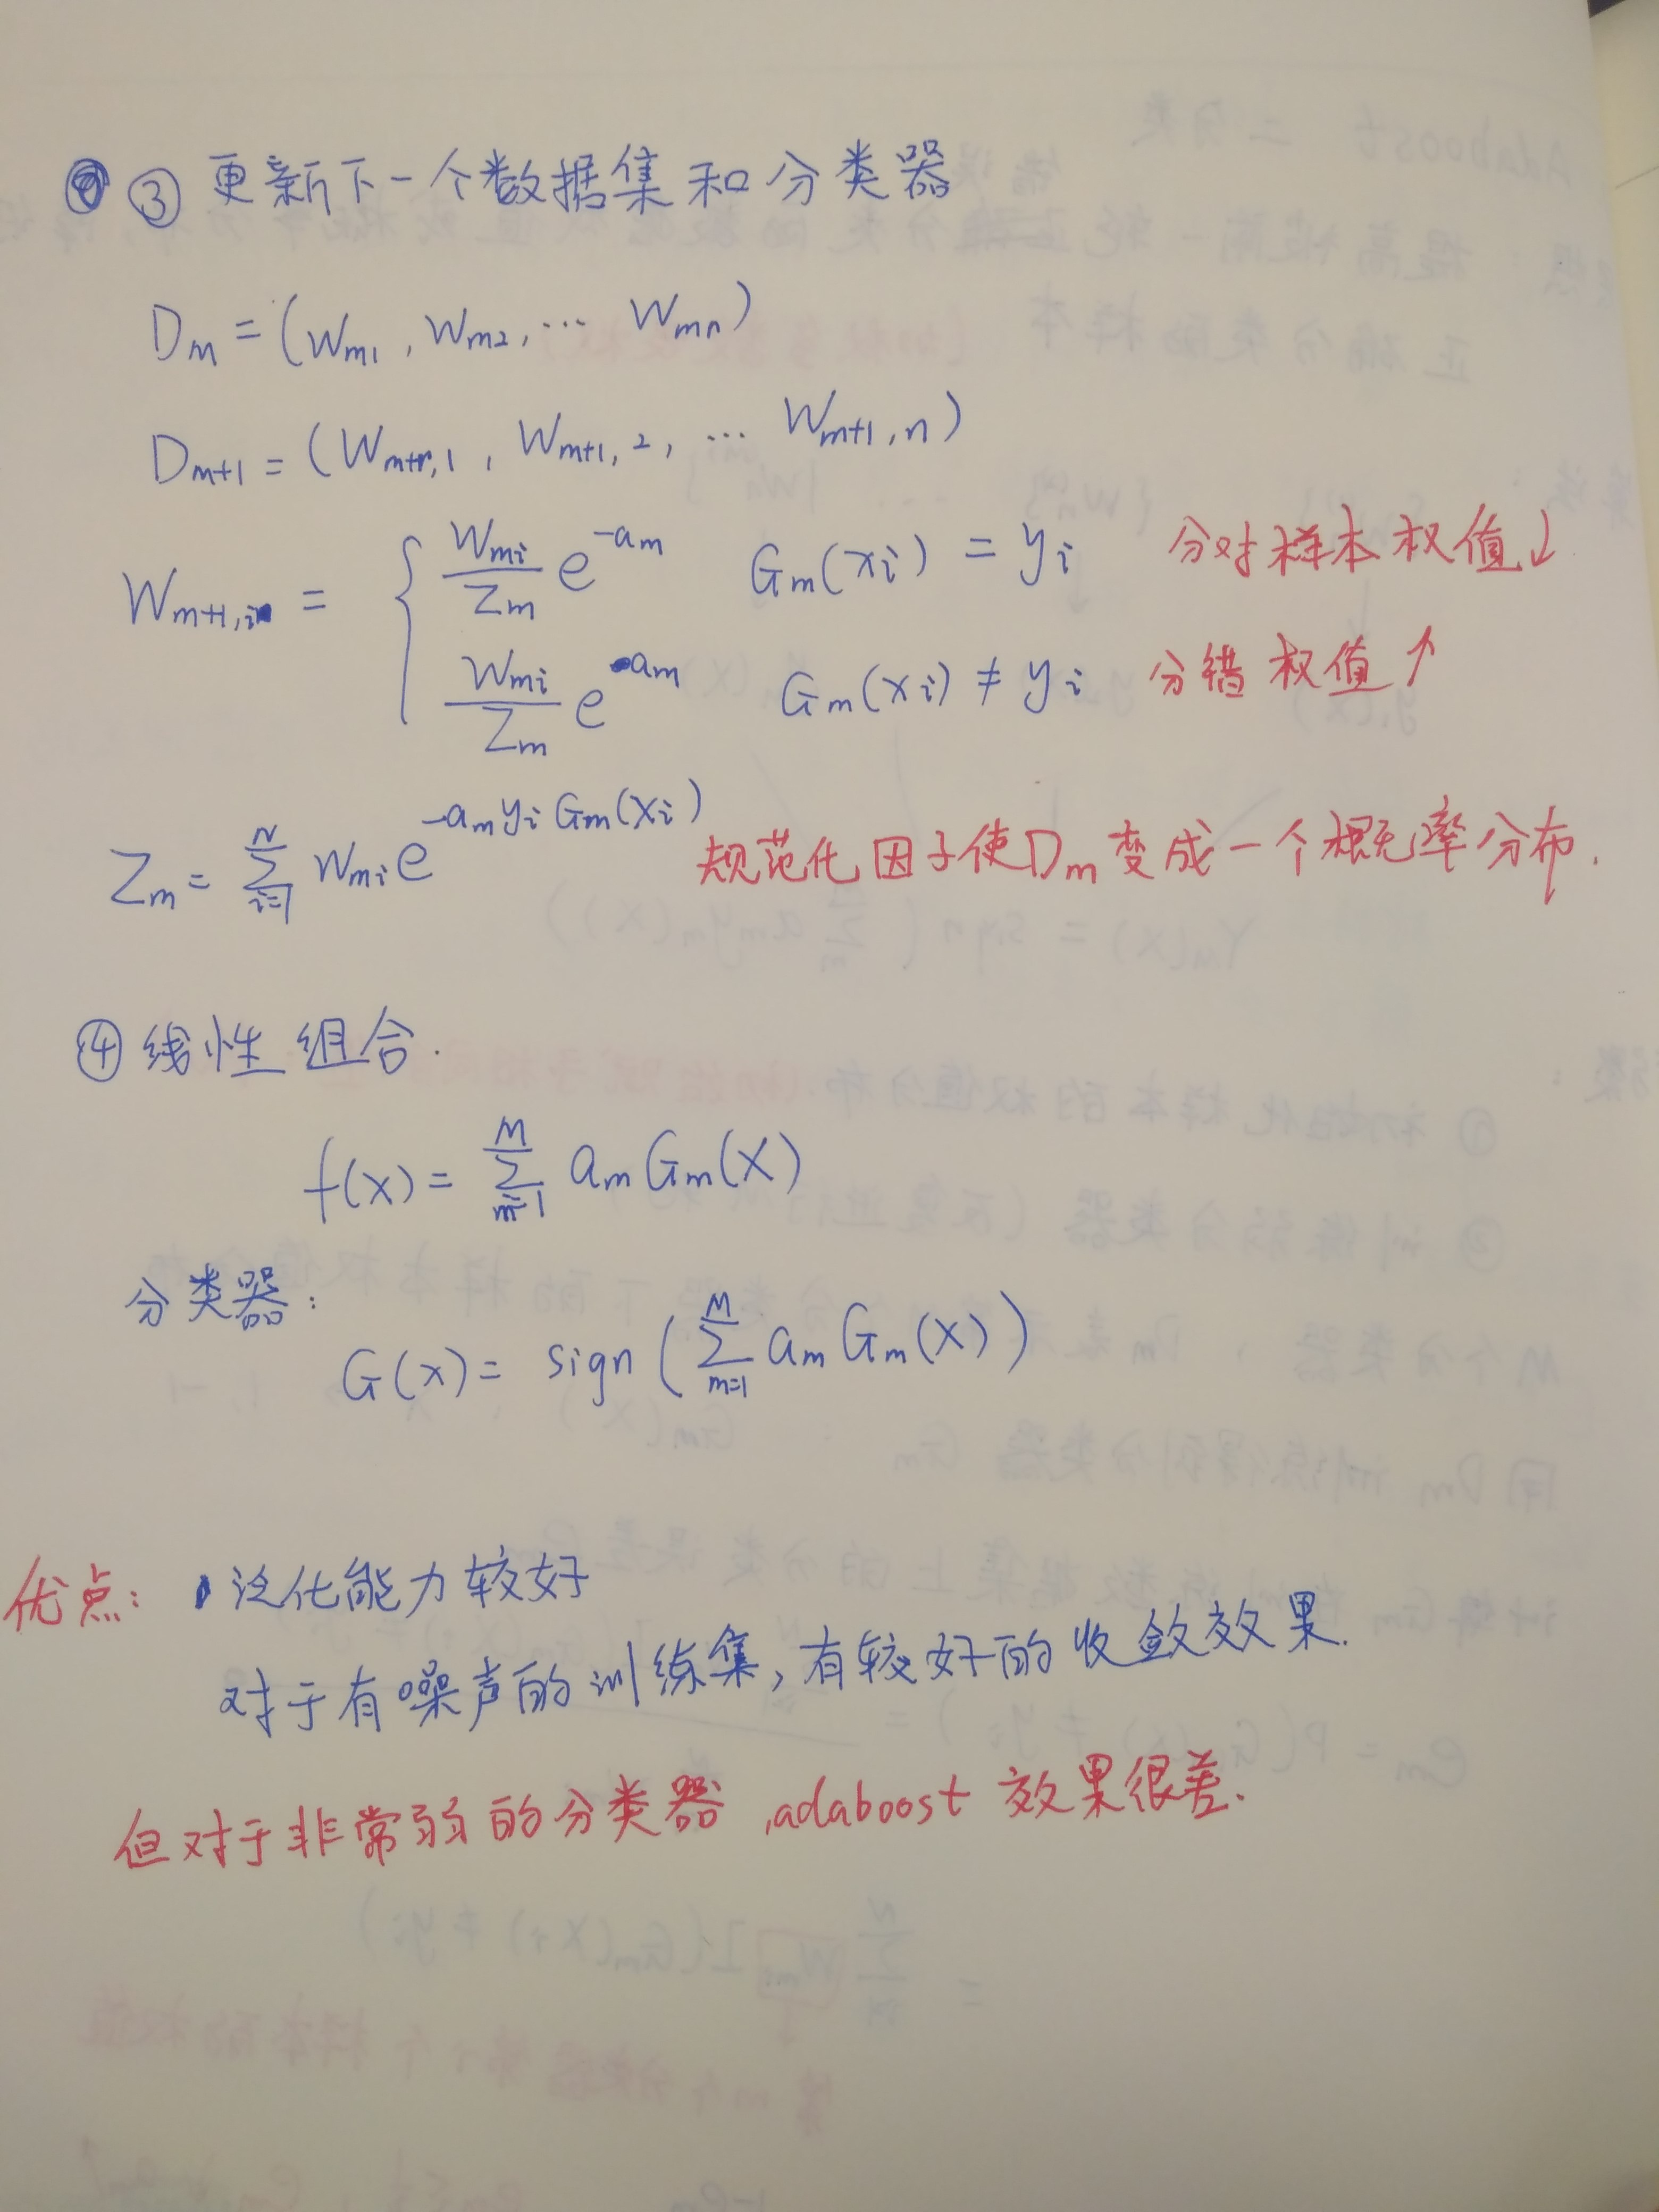 ③ 更新下一个数据集和分类器
Dm = (Wm1, Wm2, ... Wmn)
Dm+1 = (Wm+1,1, Wm+1,2, ... Wm+1,n)
Wm+1,i = { Wmi/Zm e^-am Gm(xi) = yi 分对样本权值↓
Wmi/Zm e^am Gm(xi) ≠ yi 分错权值↑
Zm = Σ(i=1..N) Wmi e^-am yi Gm(xi) 规范化因子使Dm变成一个概率分布.
④ 线性组合.
f(x) = Σ(m=1..M) am Gm(x)
分类器:
G(x) = sign(Σ(m=1..M) am Gm(x))
优点: 泛化能力较好
对于有噪声的训练集,有较好的收敛效果.
但对于非常弱的分类器,adaboost 效果很差.